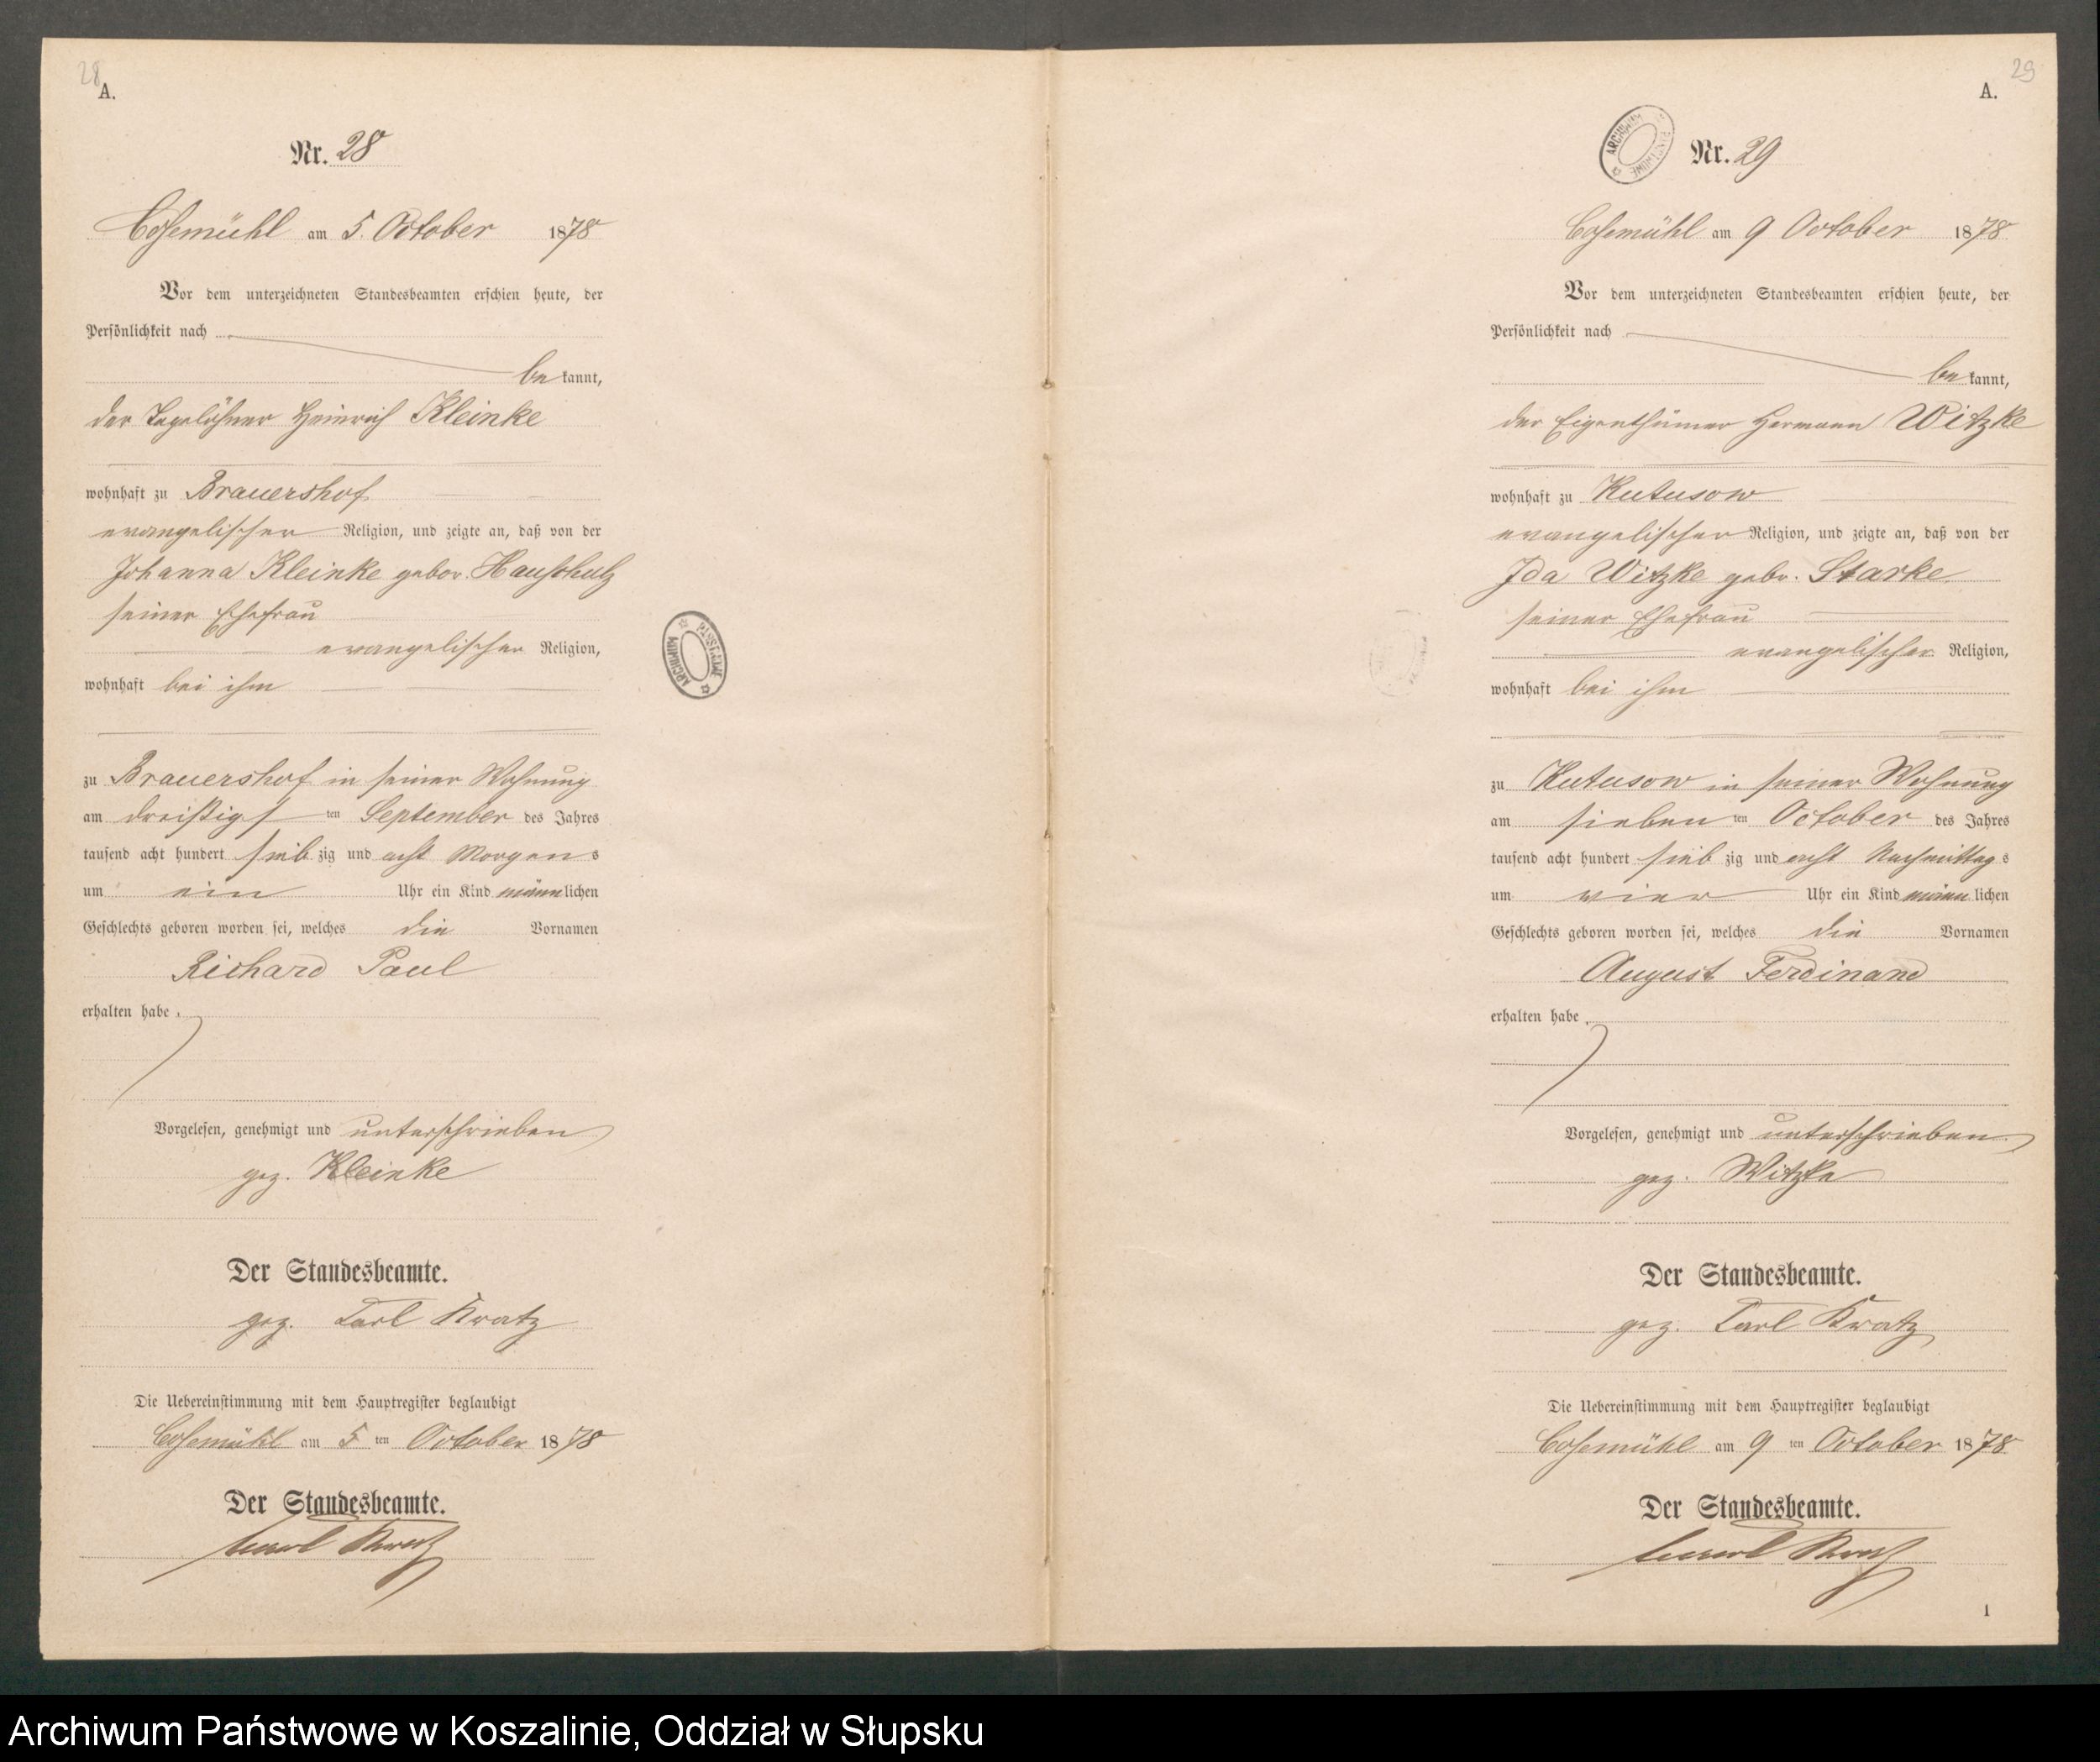 28
A.
Nr. 28
Cosemühl am 5. October 1878
Vor dem unterzeichneten Standesbeamten erschien heute, der
Persönlichkeit nach
bekannt,
der Tagelöhner Heinrich Kleinke
wohnhaft zu Brauershof
evangelischer Religion, und zeigte an, daß von der
Johanna Kleinke gebor. Hauschulz
seiner Ehefrau
evangelischer Religion,
wohnhaft bei ihm
zu Brauershof in seiner Wohnung
am dreißigsten September des Jahres
tausend acht hundert siebzig und acht Morgens
um ein Uhr ein Kind männlichen
Geschlechts geboren worden sei, welches die Vornamen
Richard Paul
erhalten habe.
Vorgelesen, genehmigt und unterschrieben
gez. Kleinke
Der Standesbeamte.
gez. Carl Kratz
Die Uebereinstimmung mit dem Hauptregister beglaubigt
Cosemühl am 5ten October 1878
Der Standesbeamte.
Carl Kratz
ARCHIWUM PAŃSTWOWE
29
A.
ARCHIWUM PAŃSTWOWE
Nr. 29
Cosemühl am 9 October 1878
Vor dem unterzeichneten Standesbeamten erschien heute, der
Persönlichkeit nach
bekannt,
der Eigenthümer Hermann Witzke
wohnhaft zu Kutusow
evangelischer Religion, und zeigte an, daß von der
Ida Witzke gebr. Starke
seiner Ehefrau
evangelischer Religion,
wohnhaft bei ihm
zu Kutusow in seiner Wohnung
am siebenten October des Jahres
tausend acht hundert siebzig und acht Nachmittags
um vier Uhr ein Kind männlichen
Geschlechts geboren worden sei, welches die Vornamen
August Ferdinand
erhalten habe.
Vorgelesen, genehmigt und unterschrieben
gez. Witzke
Der Standesbeamte.
gez. Carl Kratz
Die Uebereinstimmung mit dem Hauptregister beglaubigt
Cosemühl am 9ten October 1878
Der Standesbeamte.
Carl Kratz
1
Archiwum Państwowe w Koszalinie, Oddział w Słupsku